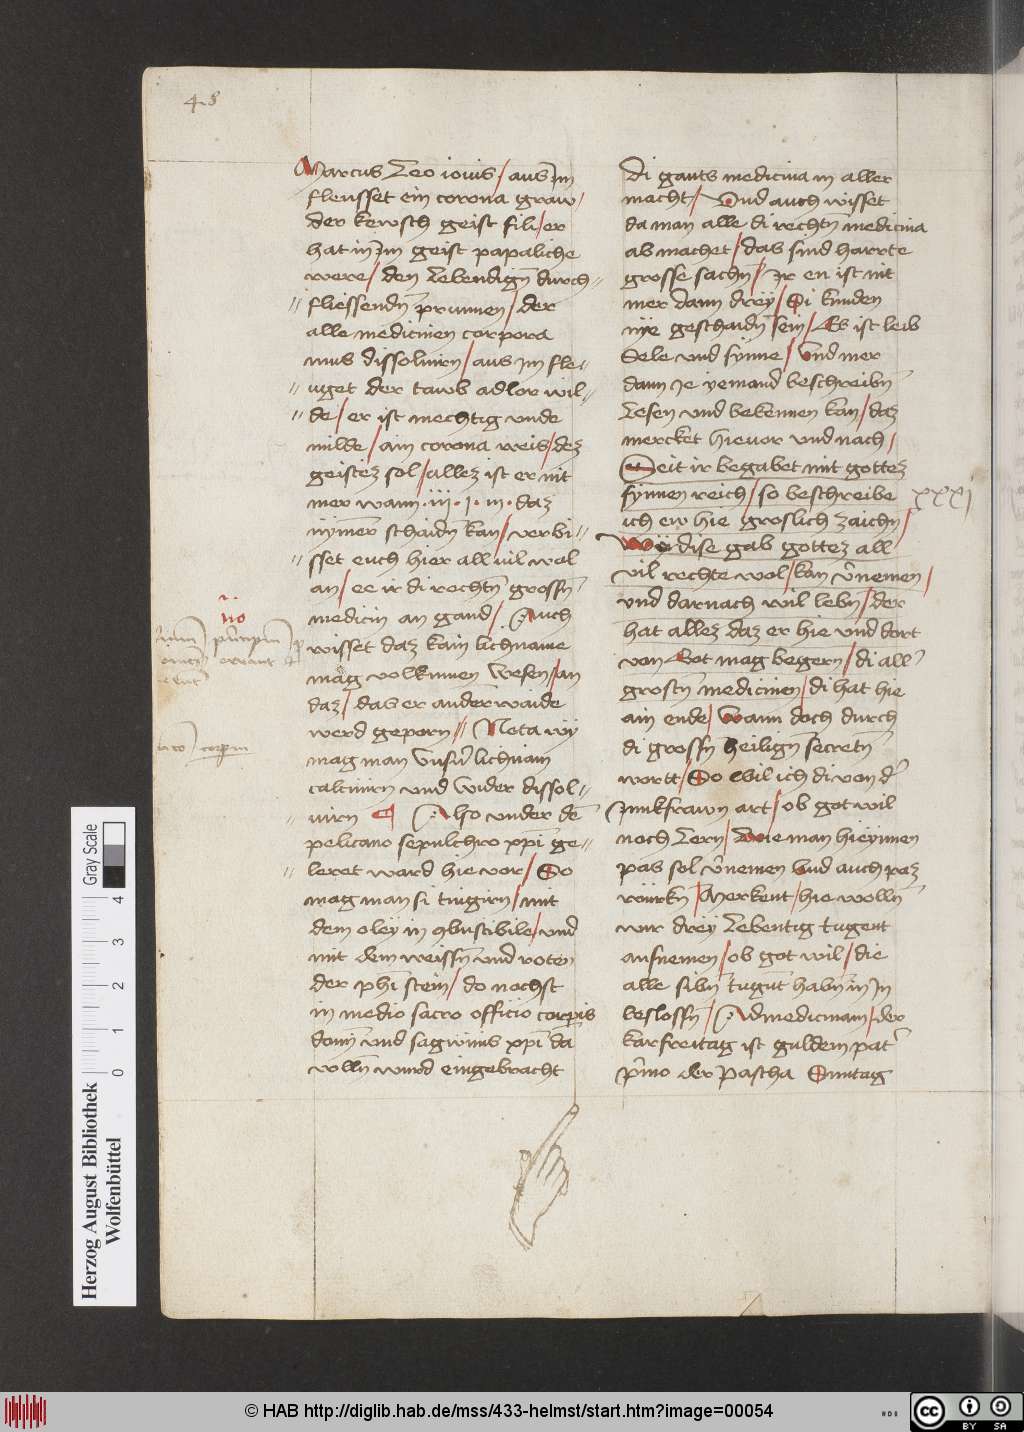 48
Marcus Leo iouis / aus Im
fleusset ein corona graw /
der kewsch geist fili / er
hat in Im geist papaliche
were / den Lebendign̄ durch=
fliessendn̄ prunnen / der
alle medicinen corpora
mus dissoluirn / aus Im fle=
uget der tawb adlor wil=
de / er ist mechtig vnde
milde / ain corona weis / dez
geistez sol / allez ist er nit
mer wann · iii · I · in · daz
nÿmer̄ schaidn̄ kan / verbi=
sset euch hier all vil wol
an / ee ir di rechtn̄ grossn̄
medicin an gand / Auch
wisset daz kain lichname
mag volkumen Wesen / an
daz / das er anderwaide
werd geporn // Nota wÿ
mag man vnsern̄ lichnam
calcinirn vnd wider dissol=
uirn ¶ Also vnder dē
pelicano sepulchro xpī ge=
leret ward hie vor / So
mag man si tingirn / mit
dem oleÿ in 9bustibile / vnd
mit dem weissn̄ vnd roten
der phī stein / do nachst
in medio sacro officio corpis
domī vnd sagwinis xpī dā
volln̄ wurd eingebracht
di gants medicina in aller
macht / Vnd auch wisset
da man alle di rechtn̄ medicina
ab machet / das sind harrte
grosse sachn̄ / Ir en ist nit
mer dann dreÿ / Si kunden
nÿe geschaidn̄ sein / Es ist leib
Sele vnd sÿnne / Vnd mer
dann Je yemand beschreibn̄
Lesen vnd bekennen kan / daz
mercket hieuor vnd nach /
Seit ir begabet mit gottez
sÿnnen reich / so beschreibe
xxxj
ich ew hie groslich zaichn̄ /
Wÿ dise gab gottez all
vil rechte wol / kan v̄nemen /
vnd darnach wil lebn̄ / der
hat allez daz er hie vnd dort
von Got mag begern̄ / di all
grostn̄ medicinen / di hat hie
ain ende / Wann doch durch
di grossn̄ heilign̄ secretn̄
wortt / So wil ich di von d'
Junkfrawn art / ob got wil
noch Lern / Wie man hieÿnnen
pas sol v̄nemen Vnd auch paz
würkn̄ / Merkent / hie wolln̄
wir dreÿ Lebentig tugent
aufnemen / ob got wil / die
alle sibn̄ tugnt habn̄ in In
beslossn̄ / Ad medicinam / der
karfreitag ist guldein pat'
p'mo der Pascha Sunntag
Herzog August Bibliothek
Wolfenbüttel
Gray Scale
0 1 2 3 4
© HAB http://diglib.hab.de/mss/433-helmst/start.htm?image=00054
cc BY SA